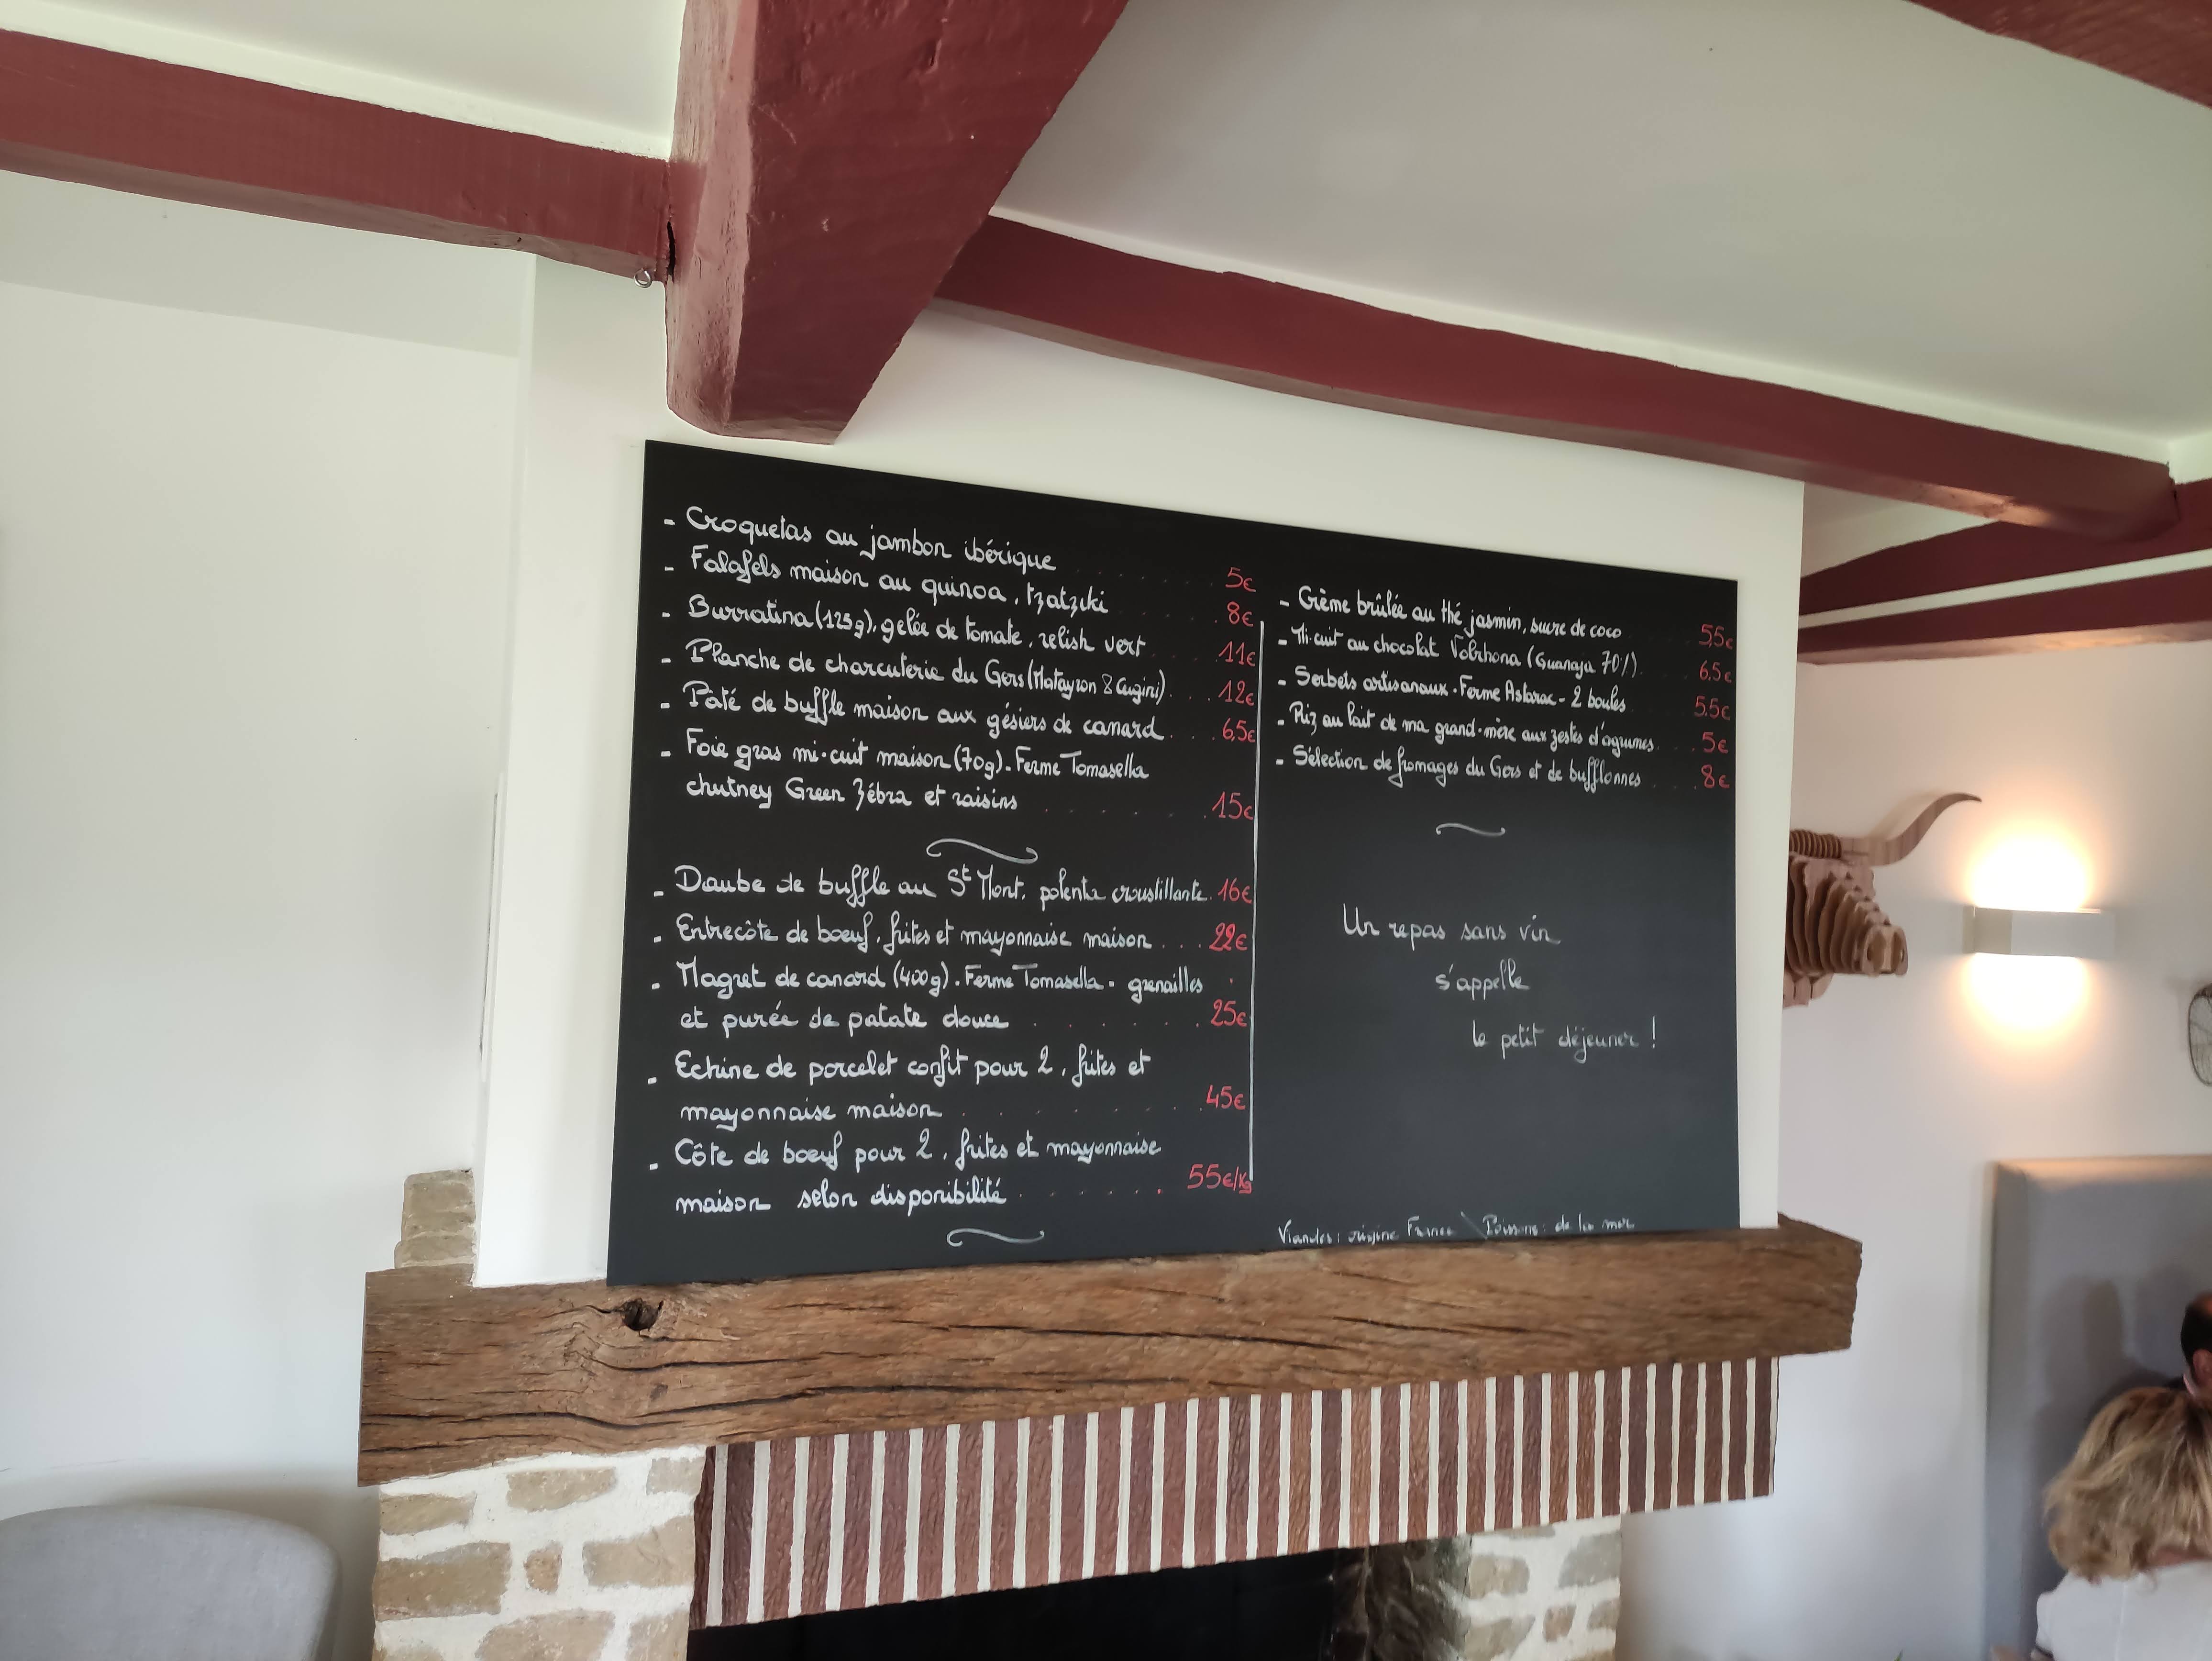 - Croquetas au jambon ibérique 5€
- Falafels maison au quinoa, tzatziki 8€
- Burratina (125g), gelée de tomate, relish vert 11€
- Planche de charcuterie du Gers (Matayron & Cugini) 12€
- Pâté de buffle maison aux gésiers de canard 6,5€
- Foie gras mi-cuit maison (70g). Ferme Tomasella
chutney Green Zébra et raisins 15€
- Daube de buffle au St Mont, polenta croustillante 16€
- Entrecôte de bœuf, frites et mayonnaise maison 22€
- Magret de canard (400g). Ferme Tomasella - grenailles
et purée de patate douce 25€
- Echine de porcelet confit pour 2, frites et
mayonnaise maison 45€
- Côte de bœuf pour 2, frites et mayonnaise
maison selon disponibilité 55€/kg
- Crème brûlée au thé jasmin, sucre de coco 5,5€
- Mi-cuit au chocolat Valrhona (Guanaja 70%) 6,5€
- Sorbets artisanaux - Ferme Astarac - 2 boules 5,5€
- Riz au lait de ma grand-mère aux zestes d'agrumes 5€
- Sélection de fromages du Gers et de bufflonnes 8€
Un repas sans vin
s'appelle
le petit déjeuner !
Viandes : origine France \ Poissons : de la mer